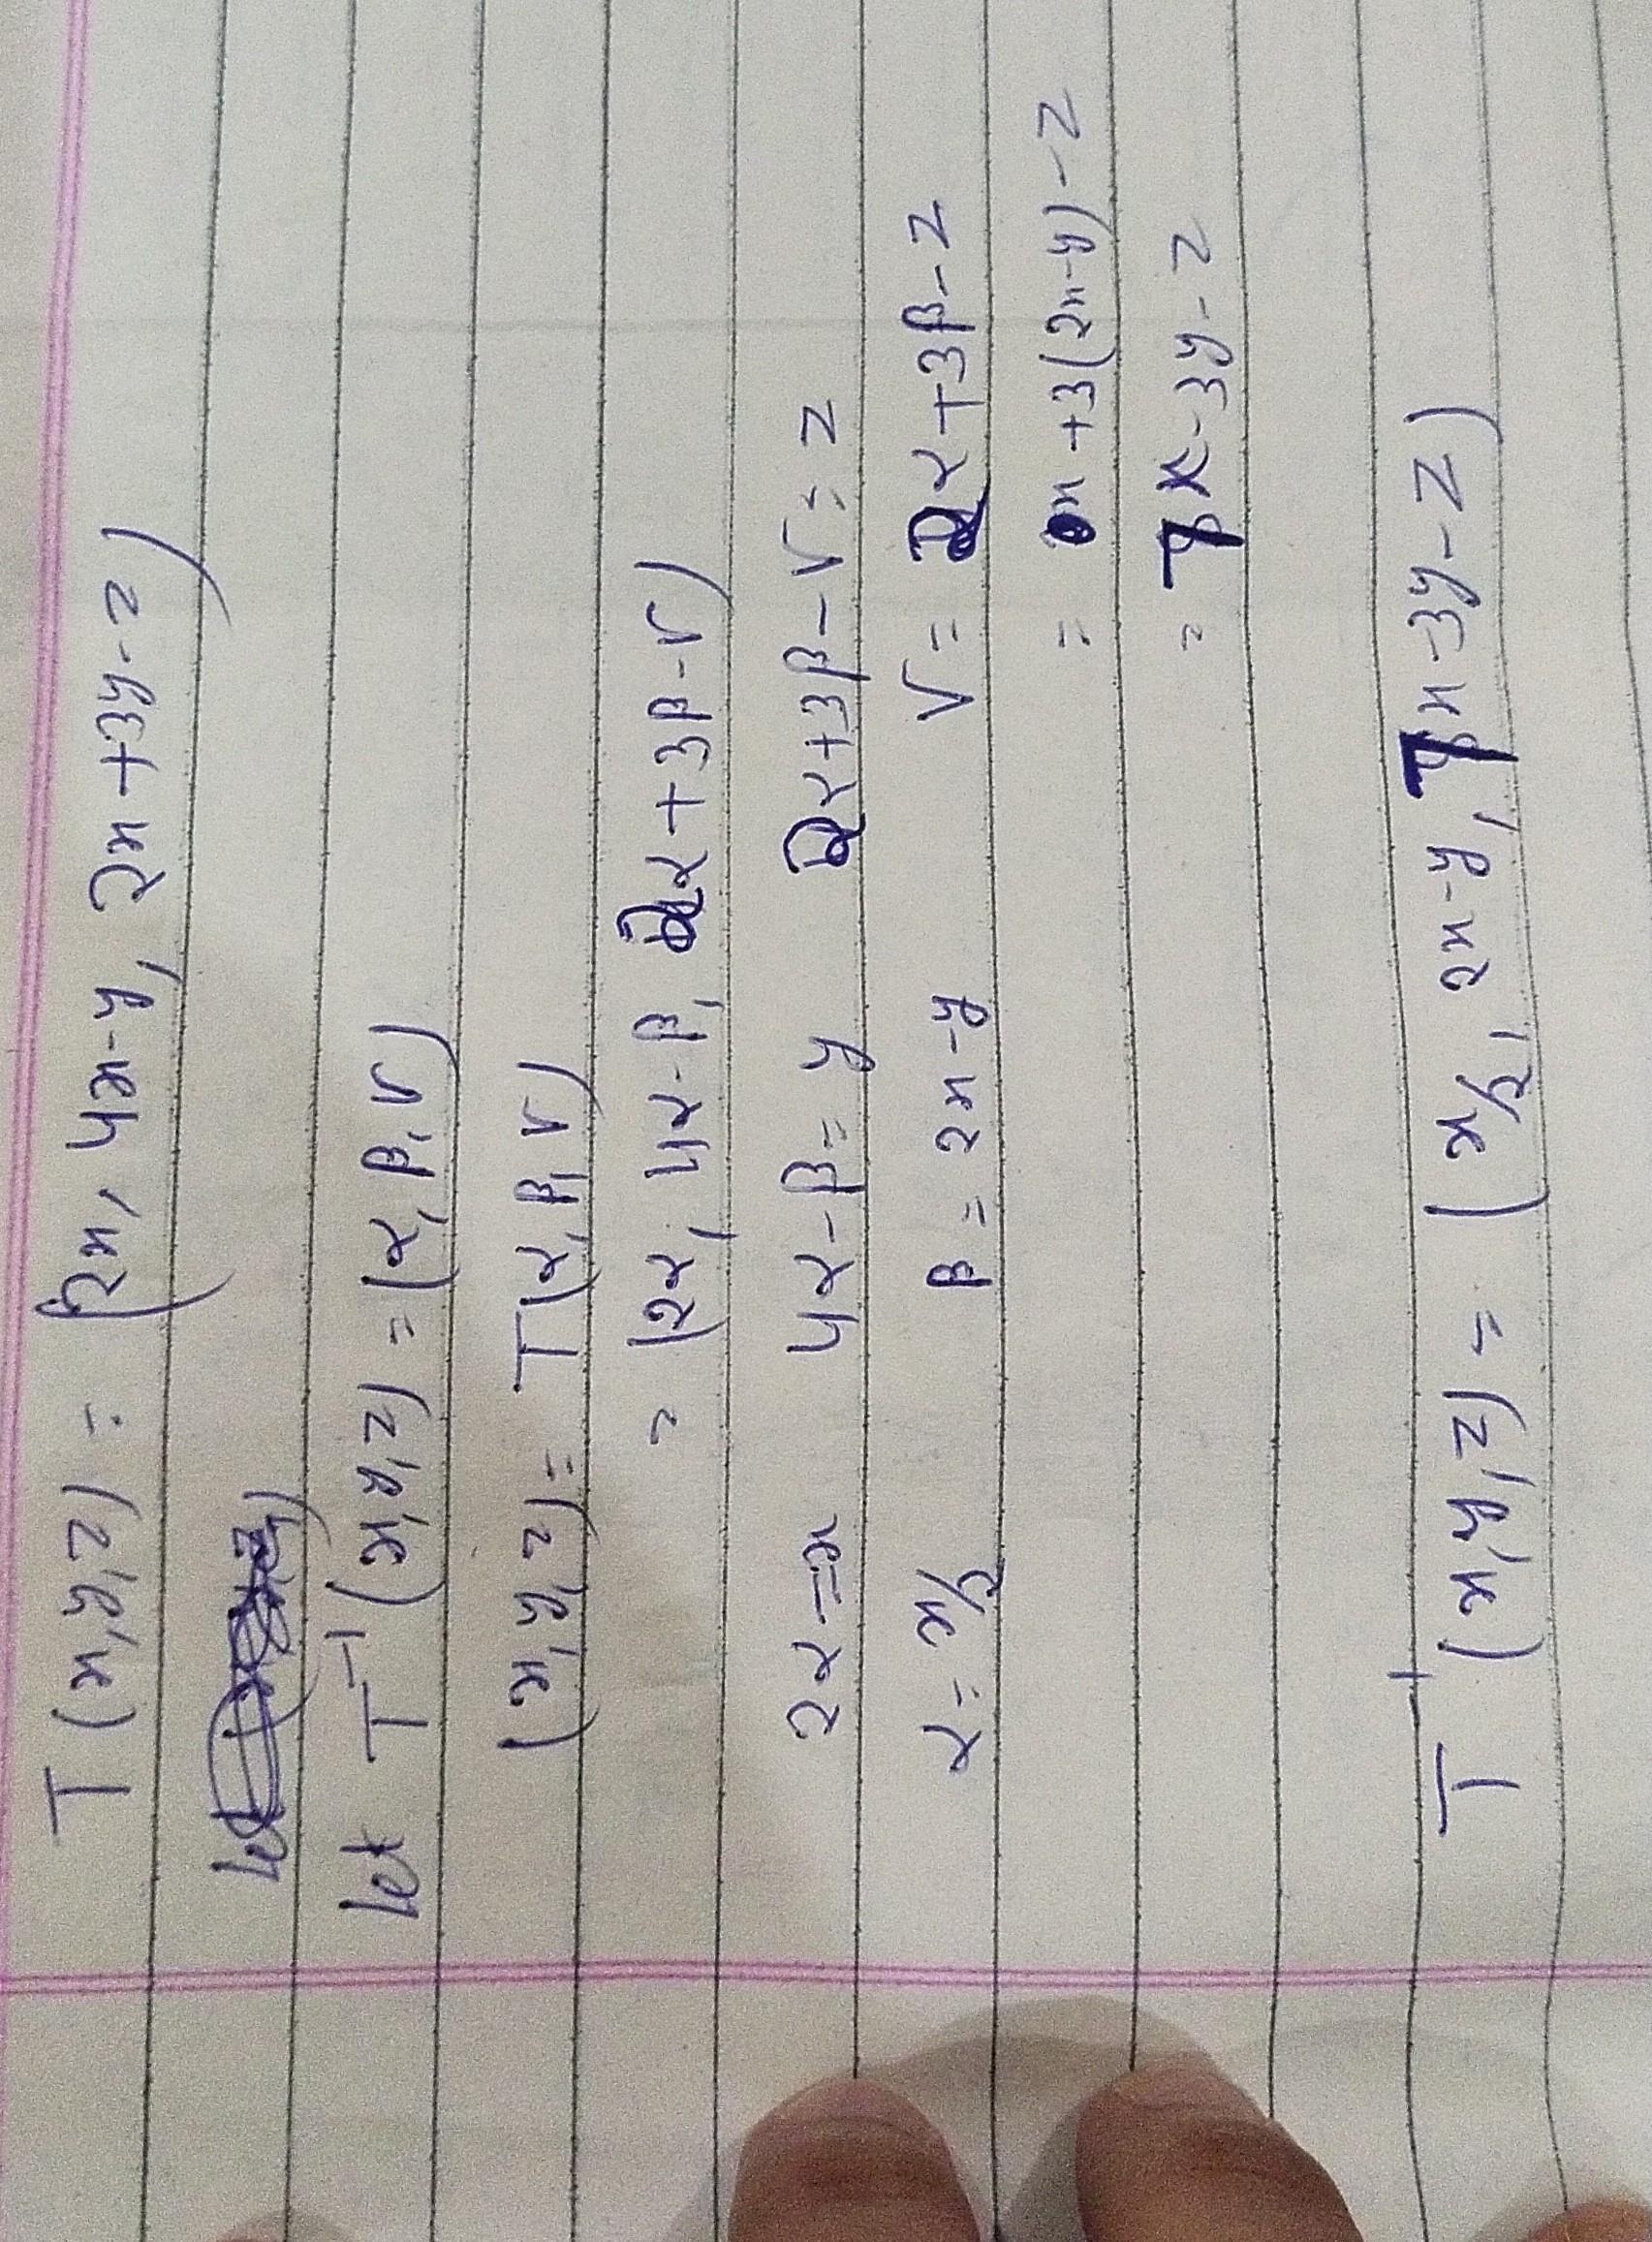 T(x,y,z) = (2x, 4x-y, 2x+3y-z)
let
let T⁻¹(x,y,z) = (α, β, γ)
(x,y,z) = T(α, β, γ)
= (2α, 4α-β, 2α+3β-γ)
2α = x 4α-β = y 2α+3β-γ = z
α = x/2 β = 2x-y γ = 2α+3β-z
= x+3(2x-y)-z
= 7x-3y-z
T⁻¹(x,y,z) = (x/2, 2x-y, 7x-3y-z)